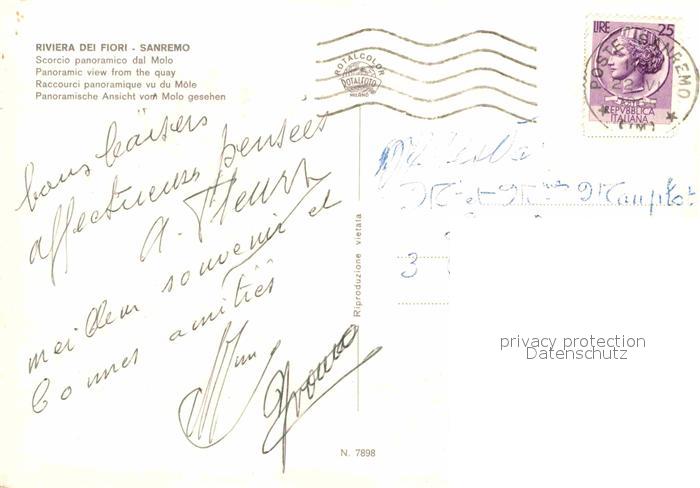 RIVIERA DEI FIORI - SANREMO
Scorcio panoramico dal Molo
Panoramic view from the quay
Raccourci panoramique vu du Môle
Panoramische Ansicht vom Molo gesehen
ROTALCOLOR
ROTALFOTO
MILANO
LIRE 25
POSTE ITALIANE
REPVBBLICA
ITALIANA
SANREMO
22 VI
(IM)
bons baisers
affectueuses pensées
A.
meilleur souvenir et
bonnes amitiés
Mme
Mr et Mme
3
Riproduzione vietata
privacy protection
Datenschutz
N. 7898